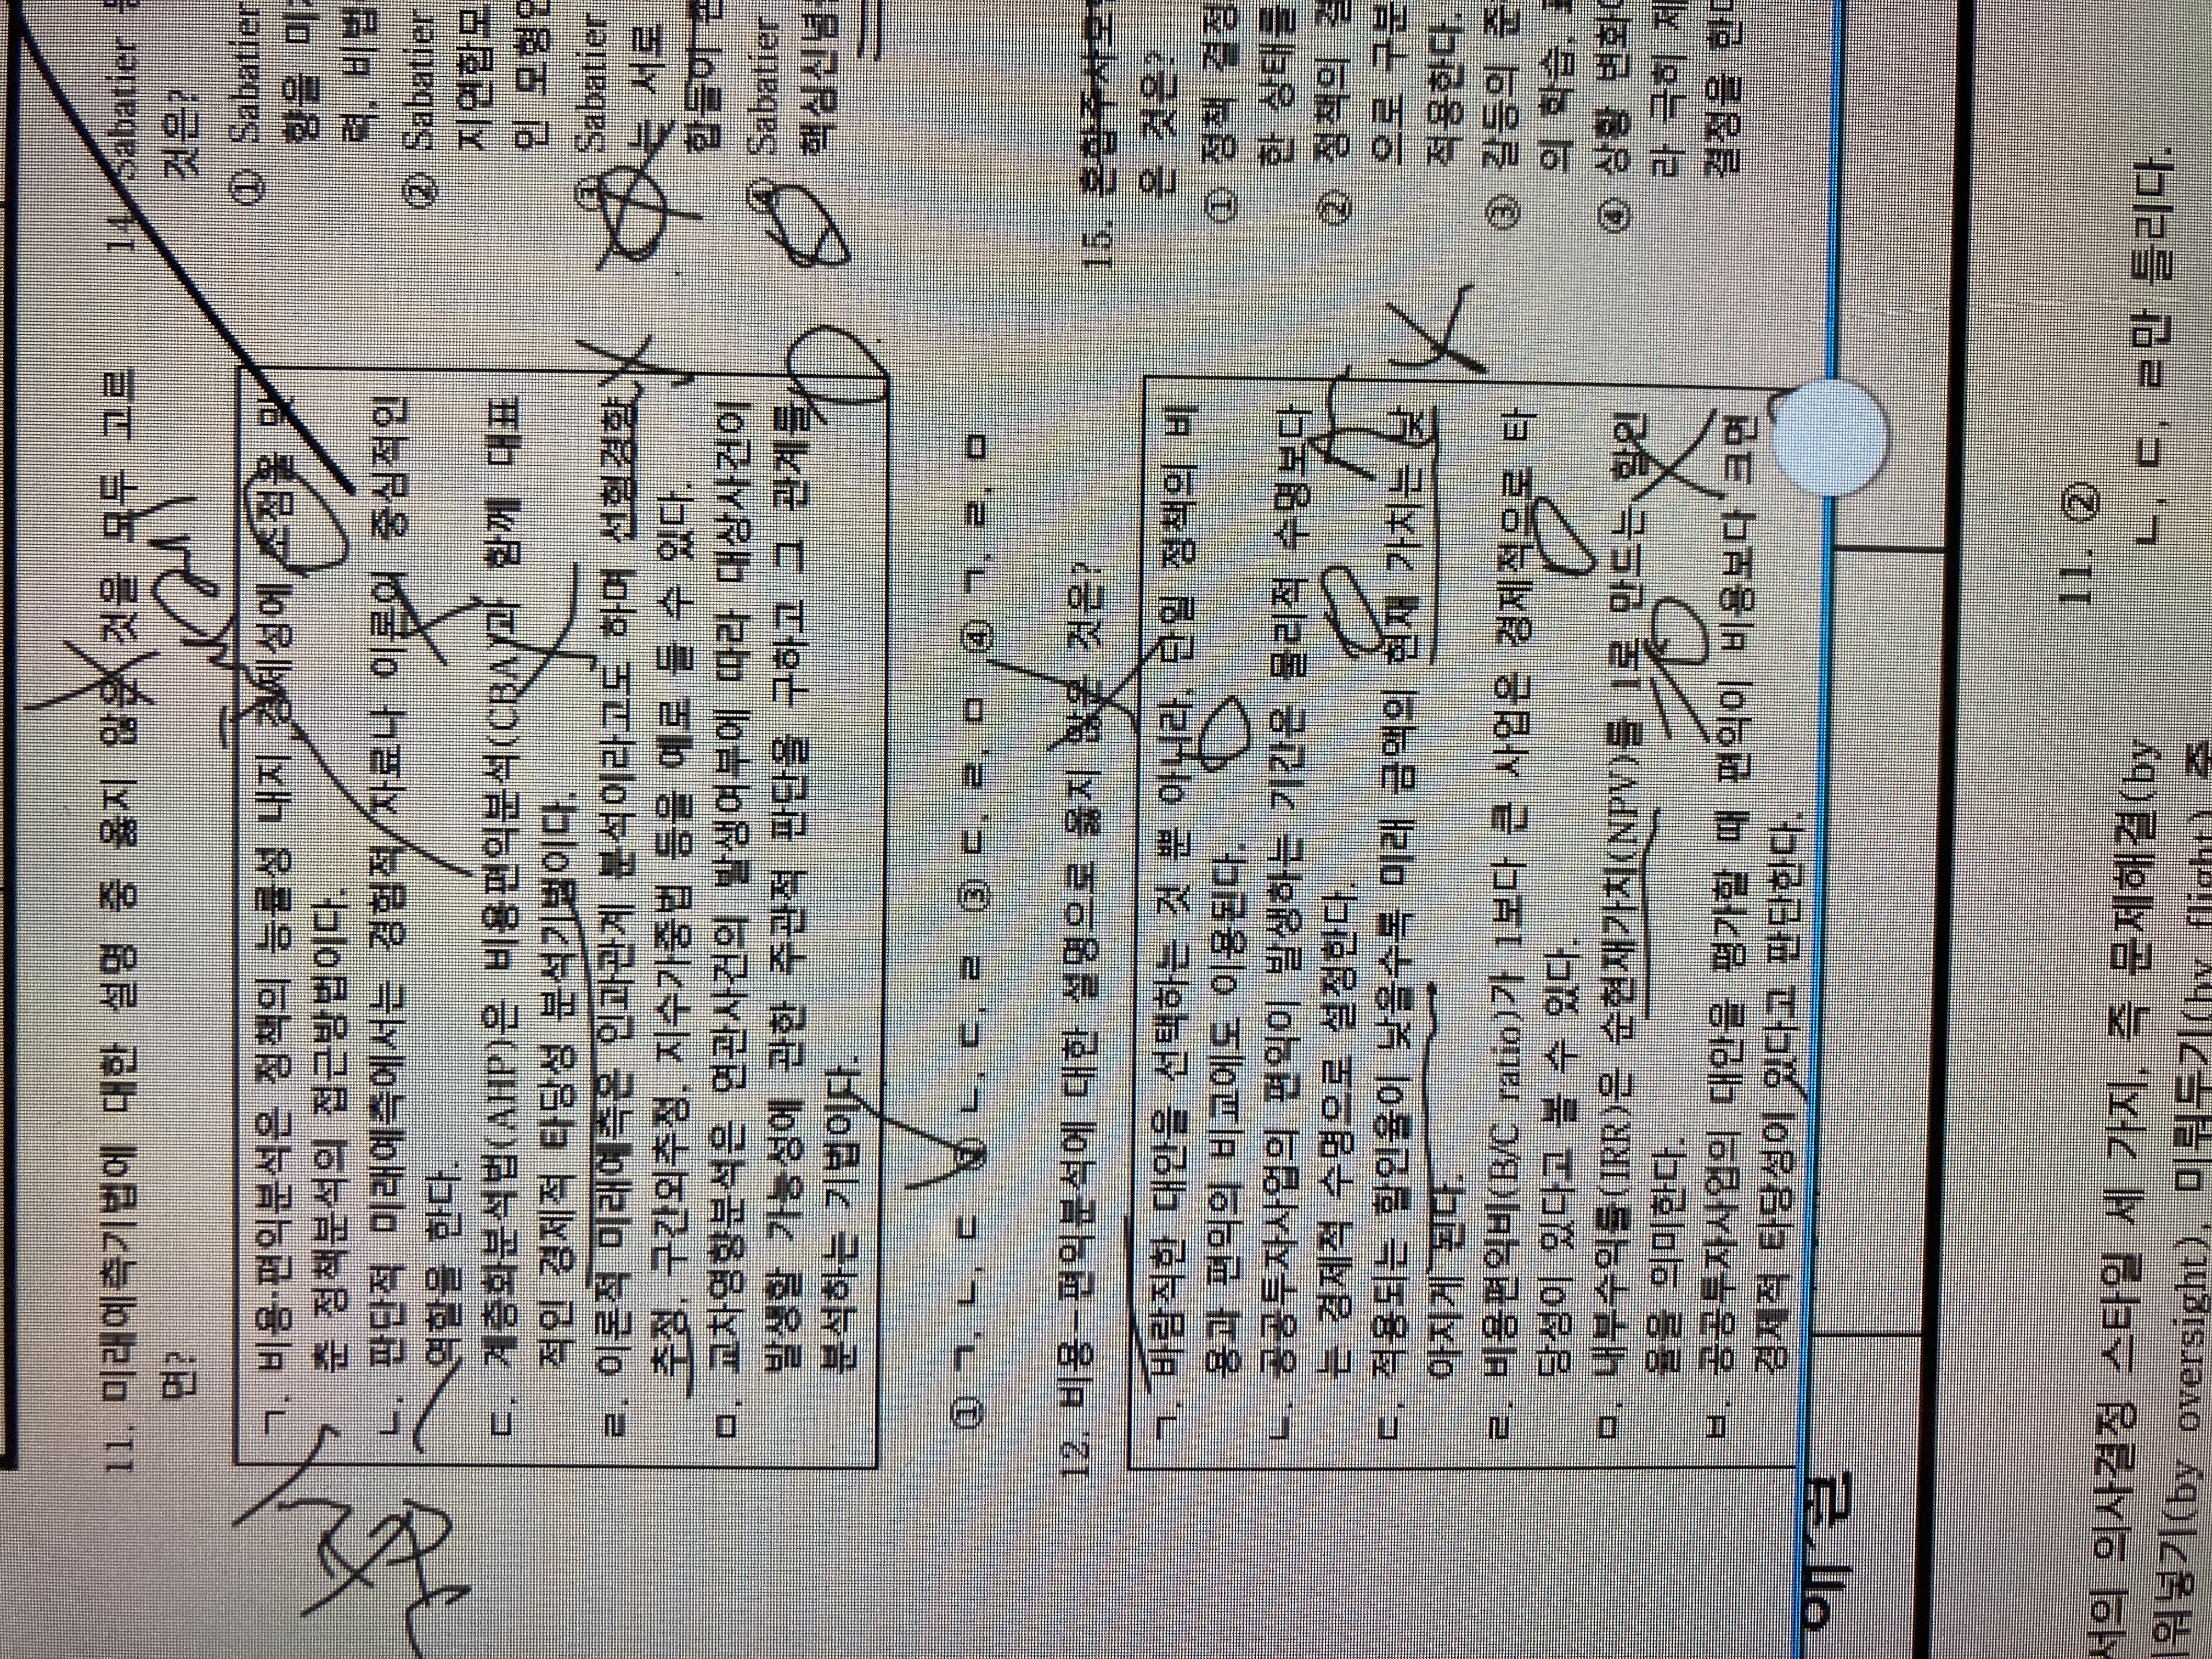 11. 미래예측기법에 대한 설명 중 옳지 않은 것을 모두 고르
면?
ㄱ. 비용·편익분석은 정책의 능률성 내지 경제성에 초점을 맞
춘 정책분석의 접근방법이다.
ㄴ. 판단적 미래예측에서는 경험적 자료나 이론이 중심적인
역할을 한다.
ㄷ. 계층화분석법(AHP)은 비용편익분석(CBA)과 함께 대표
적인 경제적 타당성 분석기법이다.
ㄹ. 이론적 미래예측은 인과관계 분석이라고도 하며 선형경향
추정, 구간외추정, 지수가중법 등을 예로 들 수 있다.
ㅁ. 교차영향분석은 연관사건의 발생여부에 따라 대상사건이
발생할 가능성에 관한 주관적 판단을 구하고 그 관계를
분석하는 기법이다.
① ㄱ, ㄴ, ㄷ ② ㄴ, ㄷ, ㄹ ③ ㄷ, ㄹ, ㅁ ④ ㄱ, ㄹ, ㅁ
12. 비용-편익분석에 대한 설명으로 옳지 않은 것은?
ㄱ. 바람직한 대안을 선택하는 것 뿐 아니라, 단일 정책의 비
용과 편익의 비교에도 이용된다.
ㄴ. 공공투자사업의 편익이 발생하는 기간은 물리적 수명보다
는 경제적 수명으로 설정한다.
ㄷ. 적용되는 할인율이 낮을수록 미래 금액의 현재 가치는 낮
아지게 된다.
ㄹ. 비용편익비(B/C ratio)가 1보다 큰 사업은 경제적으로 타
당성이 있다고 볼 수 있다.
ㅁ. 내부수익률(IRR)은 순현재가치(NPV)를 1로 만드는 할인
율을 의미한다.
ㅂ. 공공투자사업의 대안을 평가할 때 편익이 비용보다 크면
경제적 타당성이 있다고 판단한다.
14. Sabatier
것은?
① Sabatier
함을 미
력, 비법
② Sabatier
지연합모
인 모형인
③ Sabatier
는 서로
합들이
④ Sabatier
핵심신념
15. 혼합주사모
은 것은?
① 정책 결정
한 상태를
② 정책의 결
으로 구분
적용한다.
③ 갈등의 준
의 학습,
④ 상황 변화
라 극히 제
결정을 한
서의 의사결정 스타일 세 가지, 즉 문제해결(by
위넣기(by oversight), 미뤄두기(by flight) 중
11. ②
ㄴ, ㄷ, ㄹ만 틀리다.